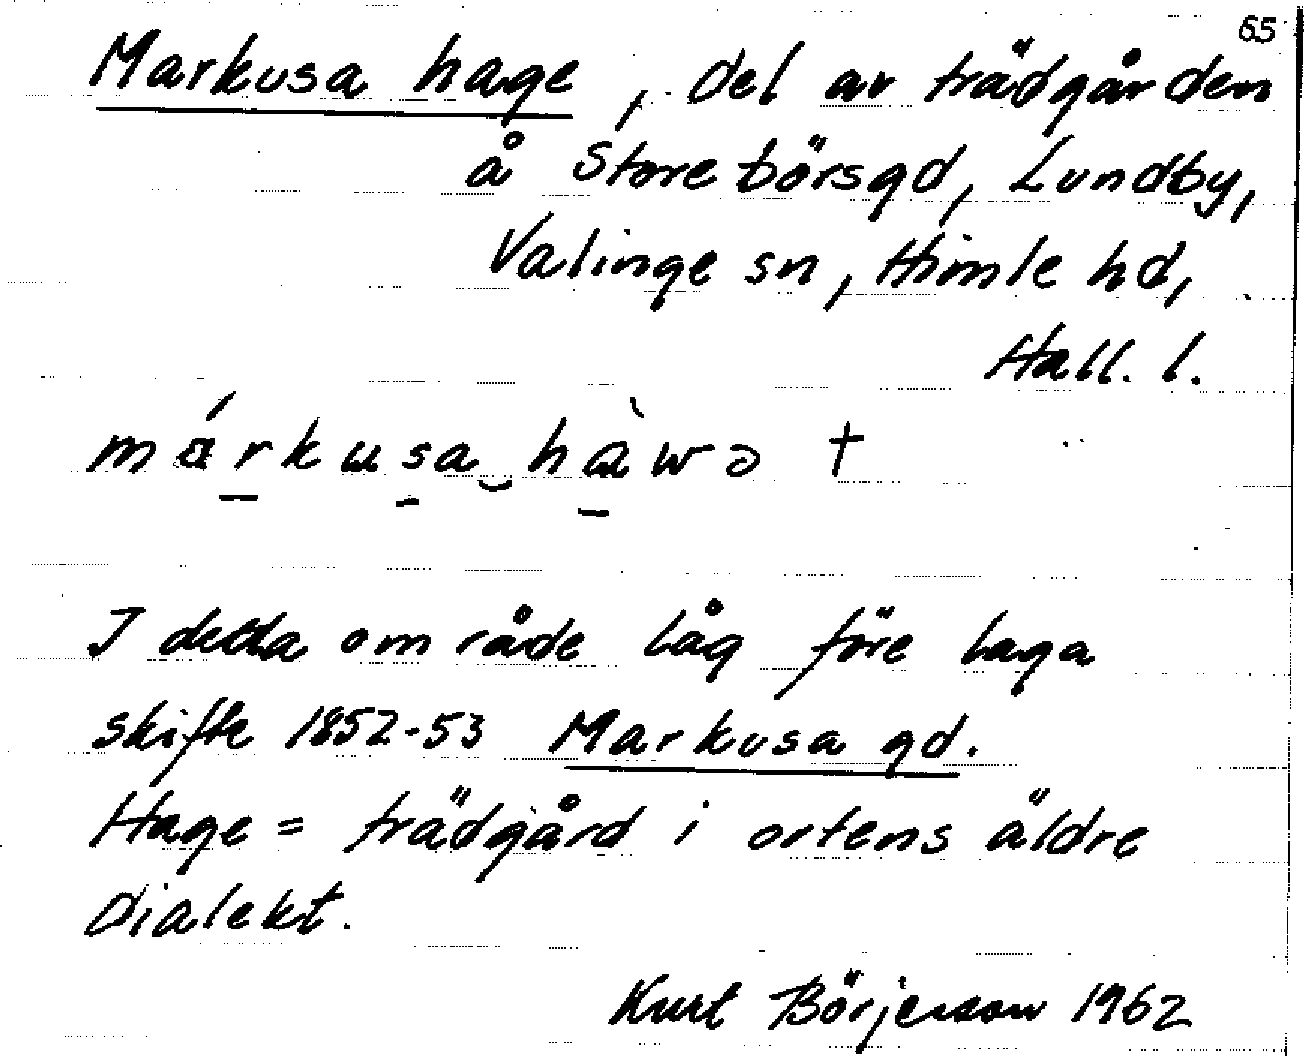 65
Markusa hage, del av trädgården
å Store Börsgd, Lundby,
Valinge sn, Himle hd,
Hall. l.
márkusa‿hàwə †
I detta område låg före laga
skifte 1852-53 Markusa gd.
Hage = trädgård i ortens äldre
dialekt.
Kurt Börjesson 1962